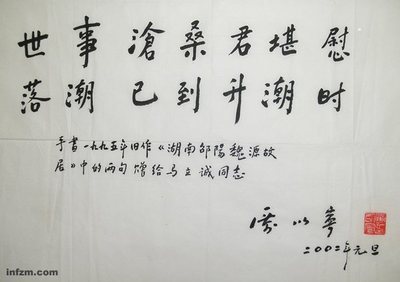 世事滄桑君堪慰
落潮已到升潮时
手書一九九五年旧作《湖南邵陽魏源故
居》中的两句赠给马立诚同志
二〇〇二年元旦
infzm.com